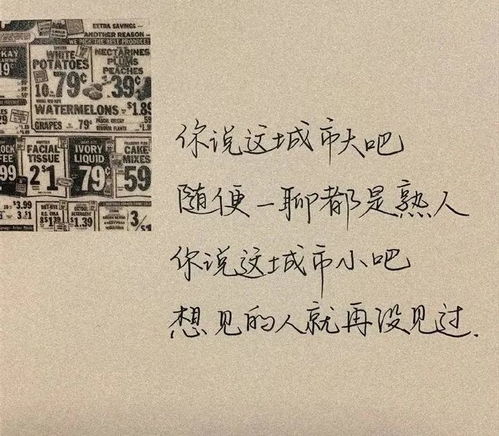 EXTRA SAVINGS
ANOTHER REASON
WHITE
POTATOES
10
79¢
NECTARINES
PLUMS
PEACHES
39¢
WATERMELONS $1.89
GRAPES 79¢
FACIAL
TISSUE
2 $1
IVORY
LIQUID
79¢
CAKE
MIXES
59
99
$3.99
$1.39
$1.39
3/
你说这城市大吧
随便一聊都是熟人
你说这城市小吧
想见的人就再没见过.